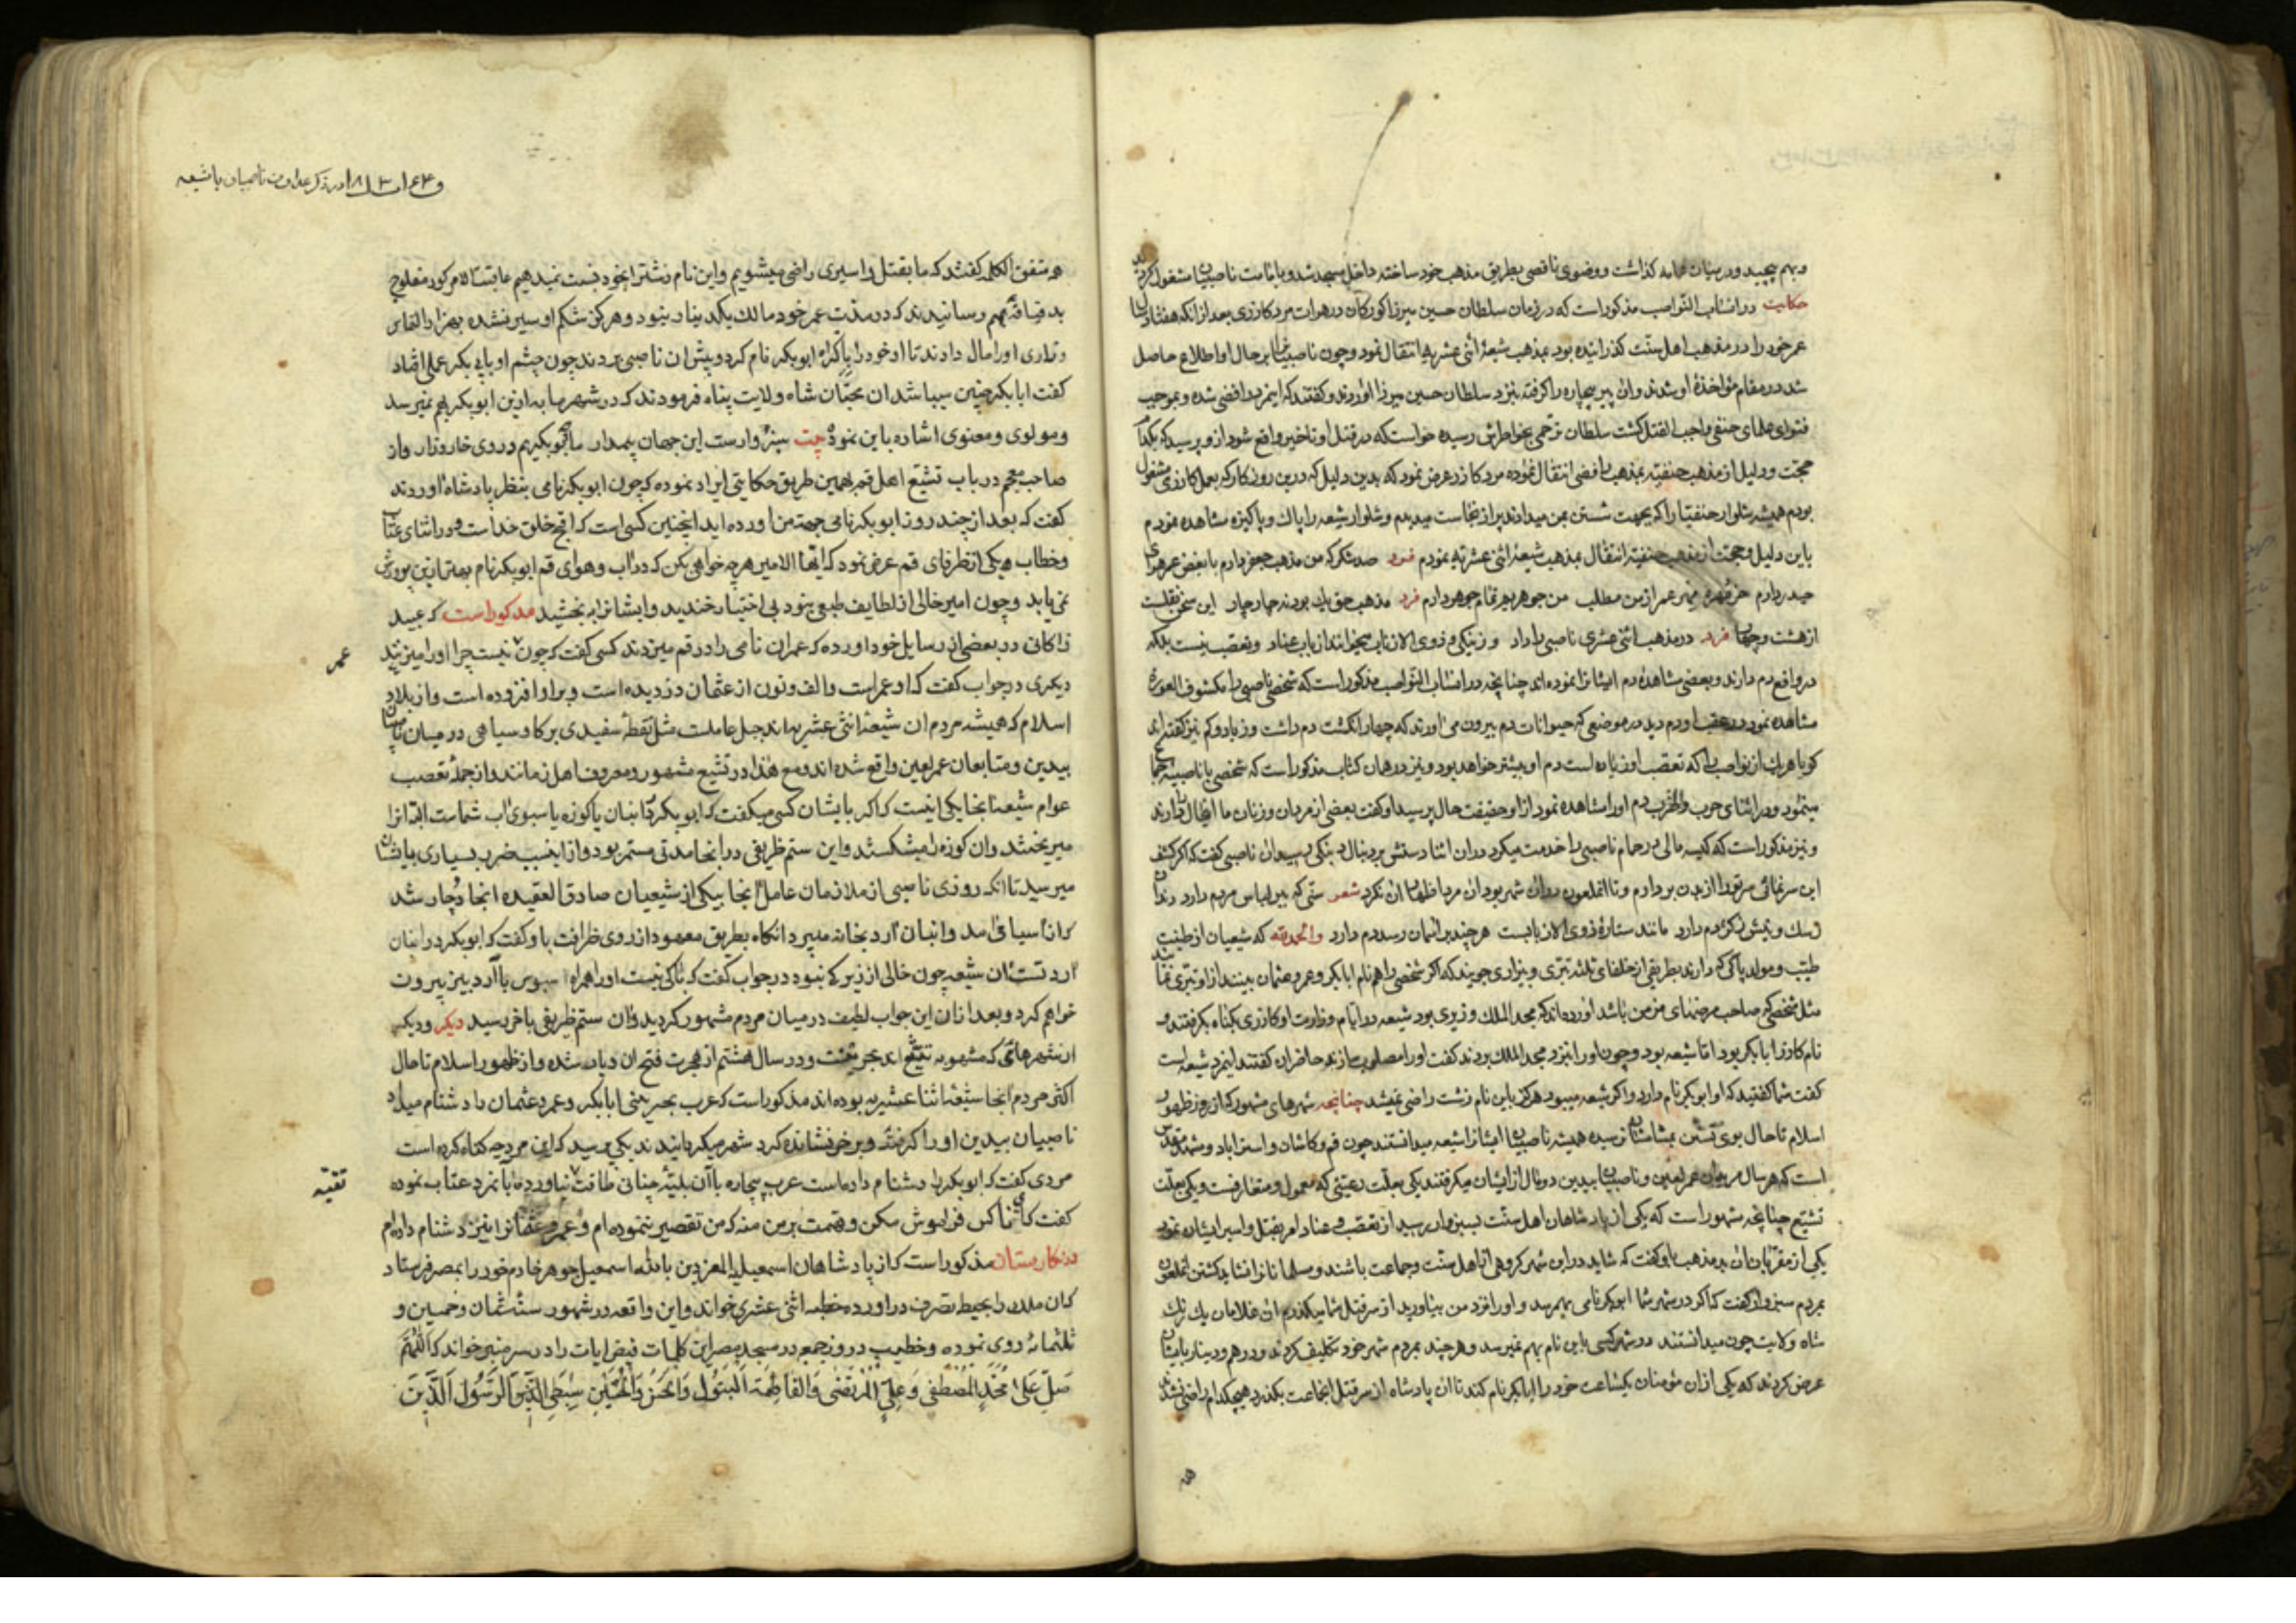 و بهم پیچید و در میان عمامه گذاشت و وضوی ناقصی بطریق مذهب خود ساخته داخل مسجد شد و بامامت ناصبیان مشغول گردید
حکایت در انساب النواصب مذکور است که در زمان سلطان حسین میرزا کورکان در هرات مرد کازری بعد از انکه هفتاد سال
عمر خود را در مذهب اهل سنت کذرانیده بود بمذهب شیعهٔ اثنی عشریه انتقال نمود و چون ناصبیان بر حال او اطلاع حاصل
شد در مقام مؤاخذهٔ او شدند و ان پیر بیچاره را کرفته بنزد سلطان حسین میرزا اوردند و کفتند که این مرد رافضی شده و بموجب
فتوای علمای حنفی واجب القتل کشت سلطان ترحمی بخاطرش رسیده خواست که در قتل او تاخیر واقع شود از و پرسید که بکدام
حجت و دلیل از مذهب حنفیه بمذهب رافضی انتقال نموده مرد کازر عرض نمود که بدین دلیل که درین روزکار که بعمل کازری مشغول
بودم همیشه شلوار حنفیان را که بجهت شستن بمن میدادند پر از نجاست میدیدم و شلوار شیعه را پاک و پاکیزه مشاهده نمودم
باین دلیل و حجت از مذهب حنفیه انتقال بمذهب شیعهٔ اثنی عشریه نمودم فرد صد شکر که من مذهب جعفر دارم با بغض عمر هوای
حیدر دارم من جوهریم تمام جوهر دارم فرد مذهب حق یک بود نه چار چار این سخن نقلست
از هشت و چهار فرد در مذهب اثنی عشری ناصبی را راد و زینکی و ذوی الاذناب میخوانند از باب عناد و تعصب نیست بلکه
در واقع دم دارند و بعضی مشاهدهٔ دم ایشانرا نموده اند چنانچه در انساب النواصب مذکور است که شخصی ناصبی را مکشوف العورة
مشاهده نمود در عقب او دم دید در موضعی که حیوانات دم بیرون می اورند که چهار انکشت دم داشت و زیاد و کم نیز کفته اند
کویا هر یک از نواصب را که تعصب او زیاده است دم او بیشتر خواهد بود و نیز در همان کتاب مذکور است که شخصی با ناصبیه
مینمود و در اثنای حرب و الضرب دم او را مشاهده نمود از او حقیقت حال پرسید او کفت بعضی از مردان و زنان ما اینحال را دارند
و نیز مذکور است که کیسه مالی در حمام ناصبی را خدمت میکرد در ان اثنا دستش بر دنبال دنبکی رسید ان ناصبی کفت که اکر کشف
این سر نمائی سر تو را از بدن بر دارم و تا انملعون در ان شهر بود ان مرد اظهار ان نکرد شعر سنی که بزیر لباس مردم دارد
مانند ستارهٔ ذوی الاذنابست هر چند بر اسمان رسد دم دارد والحمدلله که شیعیان از طینت
طیب و مولد پاکی که دارند بطریقی از خلفای ثلثه تبری و بیزاری جویند که اکر شخصی را هم نام ابابکر و عمر و عثمان بینند از او تبری نمایند
مثل شخصی که صاحب مرضهای مزمن باشد اورده اند که مجد الملک وزیری بود شیعه در ایام وزارت او کازری بکناه بکرفتند و
نام کازر ابابکر بود اما شیعه بود و چون او را بنزد مجد الملک بردند کفت او را مصلوب سازند حاضران کفتند اینمرد شیعه است
کفت شما کفتید که او ابوبکر نام دارد و اکر شیعه میبود هرکز باین نام زشت راضی نمیشد چنانچه شهرهای مشهور که از روز ظهور
اسلام تا حال بوی تسنن بمشامشان نرسیده همیشه ناصبیان ایشانرا شیعه میدانستند چون قم و کاشان و استراباد و مشهد مقدس
است که هر سال مریدان عمر لعین و ناصبیان بیدین دو مال از ایشان میکرفتند یکی بعلت رعیتی که معمول و متعارفست و یکی بعلت
تشیع چنانچه مشهور است که یکی از پادشاهان اهل سنت بسبزوار رسید از تعصب و عناد امر بقتل و اسر ایشان نمود
یکی از مقربان ان بدمذهب باو کفت که شاید در این شهر کروهی از اهل سنت و جماعت باشند و مسلمانانرا نشاید کشتن انملعون
بمردم سبزوار کفت که اکر در شهر شما ابوبکر نامی بهم رسد و او را نزد من بیاورید از سر قتل شما میکذرم ان غلامان یک رنک
شاه ولایت چون میدانستند در شهر کسی باین نام بهم نمیرسد و هر چند بمردم شهر خود تکلیف کردند و درهم و دینار بایشان
عرض کردند که یکی از ان مؤمنان یکساعت خود را ابابکر نام کند تا ان پادشاه از سر قتل انجماعت بکذرد هیچکدام راضی نشدند
در ذکر عداوت ناصبیان با شیعه
همه متفق الکلمه کفتند که ما بقتل و اسیری راضی میشویم و این نام زشت را بخود نسبت نمیدهیم عاقبت الامر کور مفلوج
بد قیافهٔ بهم رسانیدند که در مدت عمر خود مالک یکدینار نبود و هرکز شکم او سیر نشده بهزار التماس
و زاری او را مال دادند تا او خود را باکراه ابوبکر نام کرد و پیش ان ناصبی بردند چون چشم او بابی بکر عملی افتاد
کفت ابابکر چنین میباشد ان محبان شاه ولایت پناه فرمودند که در شهر ما به از این ابوبکر بهم نمیرسد
و مولوی و معنوی اشاره باین نموده بیت سبزوارست این جهان بیمدار ما چو بوبکریم در وی خار و زار و از
صاحب معجم در باب تشیع اهل قم بهمین طریق حکایتی ایراد نموده که چون ابوبکر نامی بنظر پادشاه اوردند
کفت که بعد از چند روز ابوبکر نامی جهة من اورده اید اینچنین کسی است که اقبح خلق خداست و در اثنای عتاب
و خطاب یکی از ظرفای قم عرض نمود که ایها الامیر هر چه خواهی بکن که در اب و هوای قم ابوبکر نام بهتر ازین پرورش
نمی یابد و چون امیر خالی از لطایف طبعی نبود بی اختیار خندید و ایشانرا باو بخشید مذکور است که عبید
زاکانی در بعضی از رسایل خود اورده که عمران نامی را در قم میزدند کسی کفت که چون عمر نیست چرا او را میزنید
دیکری در جواب کفت که او عمر است و الف و نون از عثمان دزدیده است و بر او افزوده است و از بلاد
اسلام که همیشه مردم ان شیعهٔ اثنی عشریه اند جبل عاملست مثل نقطهٔ سفیدی بر کاو سیاهی در میان ناصبیان
بیدین و متابعان عمر لعین واقع شده اند و مع هذا در تشیع مشهور و معروف اهل زمانند و از جملهٔ تعصب
عوام شیعهٔ انجا یکی اینست که اکر بایشان کسی میکفت که ابوبکر در انبان یا کوزه یا سبوی اب شماست البته انرا
میریختند و ان کوزه را میشکستند و این ستم ظریفی در انجا مدتی مستمر بود و از اینسبب ضرر بسیاری بایشان
میرسید تا انکه روزی ناصبی از ملازمان عامل انجا بیکی از شیعیان صادق العقیده انجا دچار شد
که از اسیا می امد و انبان ارد بخانه میبرد انکاه بطریق معهود از روی ظرافت باو کفت که ابوبکر در انبان
ارد تست ان شیعه چون خالی از زیرکی نبود در جواب کفت که باکی نیست او را همراه سبوس با ارد بیز بیرون
خواهم کرد و بعد از ان این جواب لطیف در میان مردم مشهور کردید و ان ستم ظریفی باخر رسید دیکر و دیکر
از شهرهائی که مشهور به تشیع اند بحرینست و در سال هشتم از هجرت فتح ان دیار شده و از ظهور اسلام تا حال
اکثر مردم انجا شیعهٔ اثنا عشریه بوده اند مذکور است که عرب بحرینی ابابکر و عمر و عثمان را دشنام میداد
ناصبیان بیدین او را کرفتند و بر خر نشانده کرد شهر میکردانیدند یکی پرسید که این مرد چه کناه کرده است
مردی کفت که ابوبکر را دشنام داده است عرب بیچاره با ان بلیه چنانی طاقت نیاورده با نمرد عتاب نموده
کفت که ای ناکس فراموش مکن و تهمت بر من منه که من تقصیر ننموده ام و عمر و عثمانرا نیز دشنام داده ام
در نکارستان مذکور است که از پادشاهان اسمعیلیه المعز دین بالله اسمعیل جوهر خادم خود را بمصر فرستاد
که ان ملک را بحیطهٔ تصرف در اورده خطبه اثنی عشری خواند و این واقعه در شهور سنهٔ ثمان و خمسین و
ثلثمائه روی نموده و خطیب در روز جمعه در مسجد مصر این کلمات فیض ایات را در سر منبر خواند که اللهم
صل علی محمد المصطفی و علی المرتضی و الفاطمة البتول و الحسن و الحسین سبطی الرسول الذین
عمر
تقیه